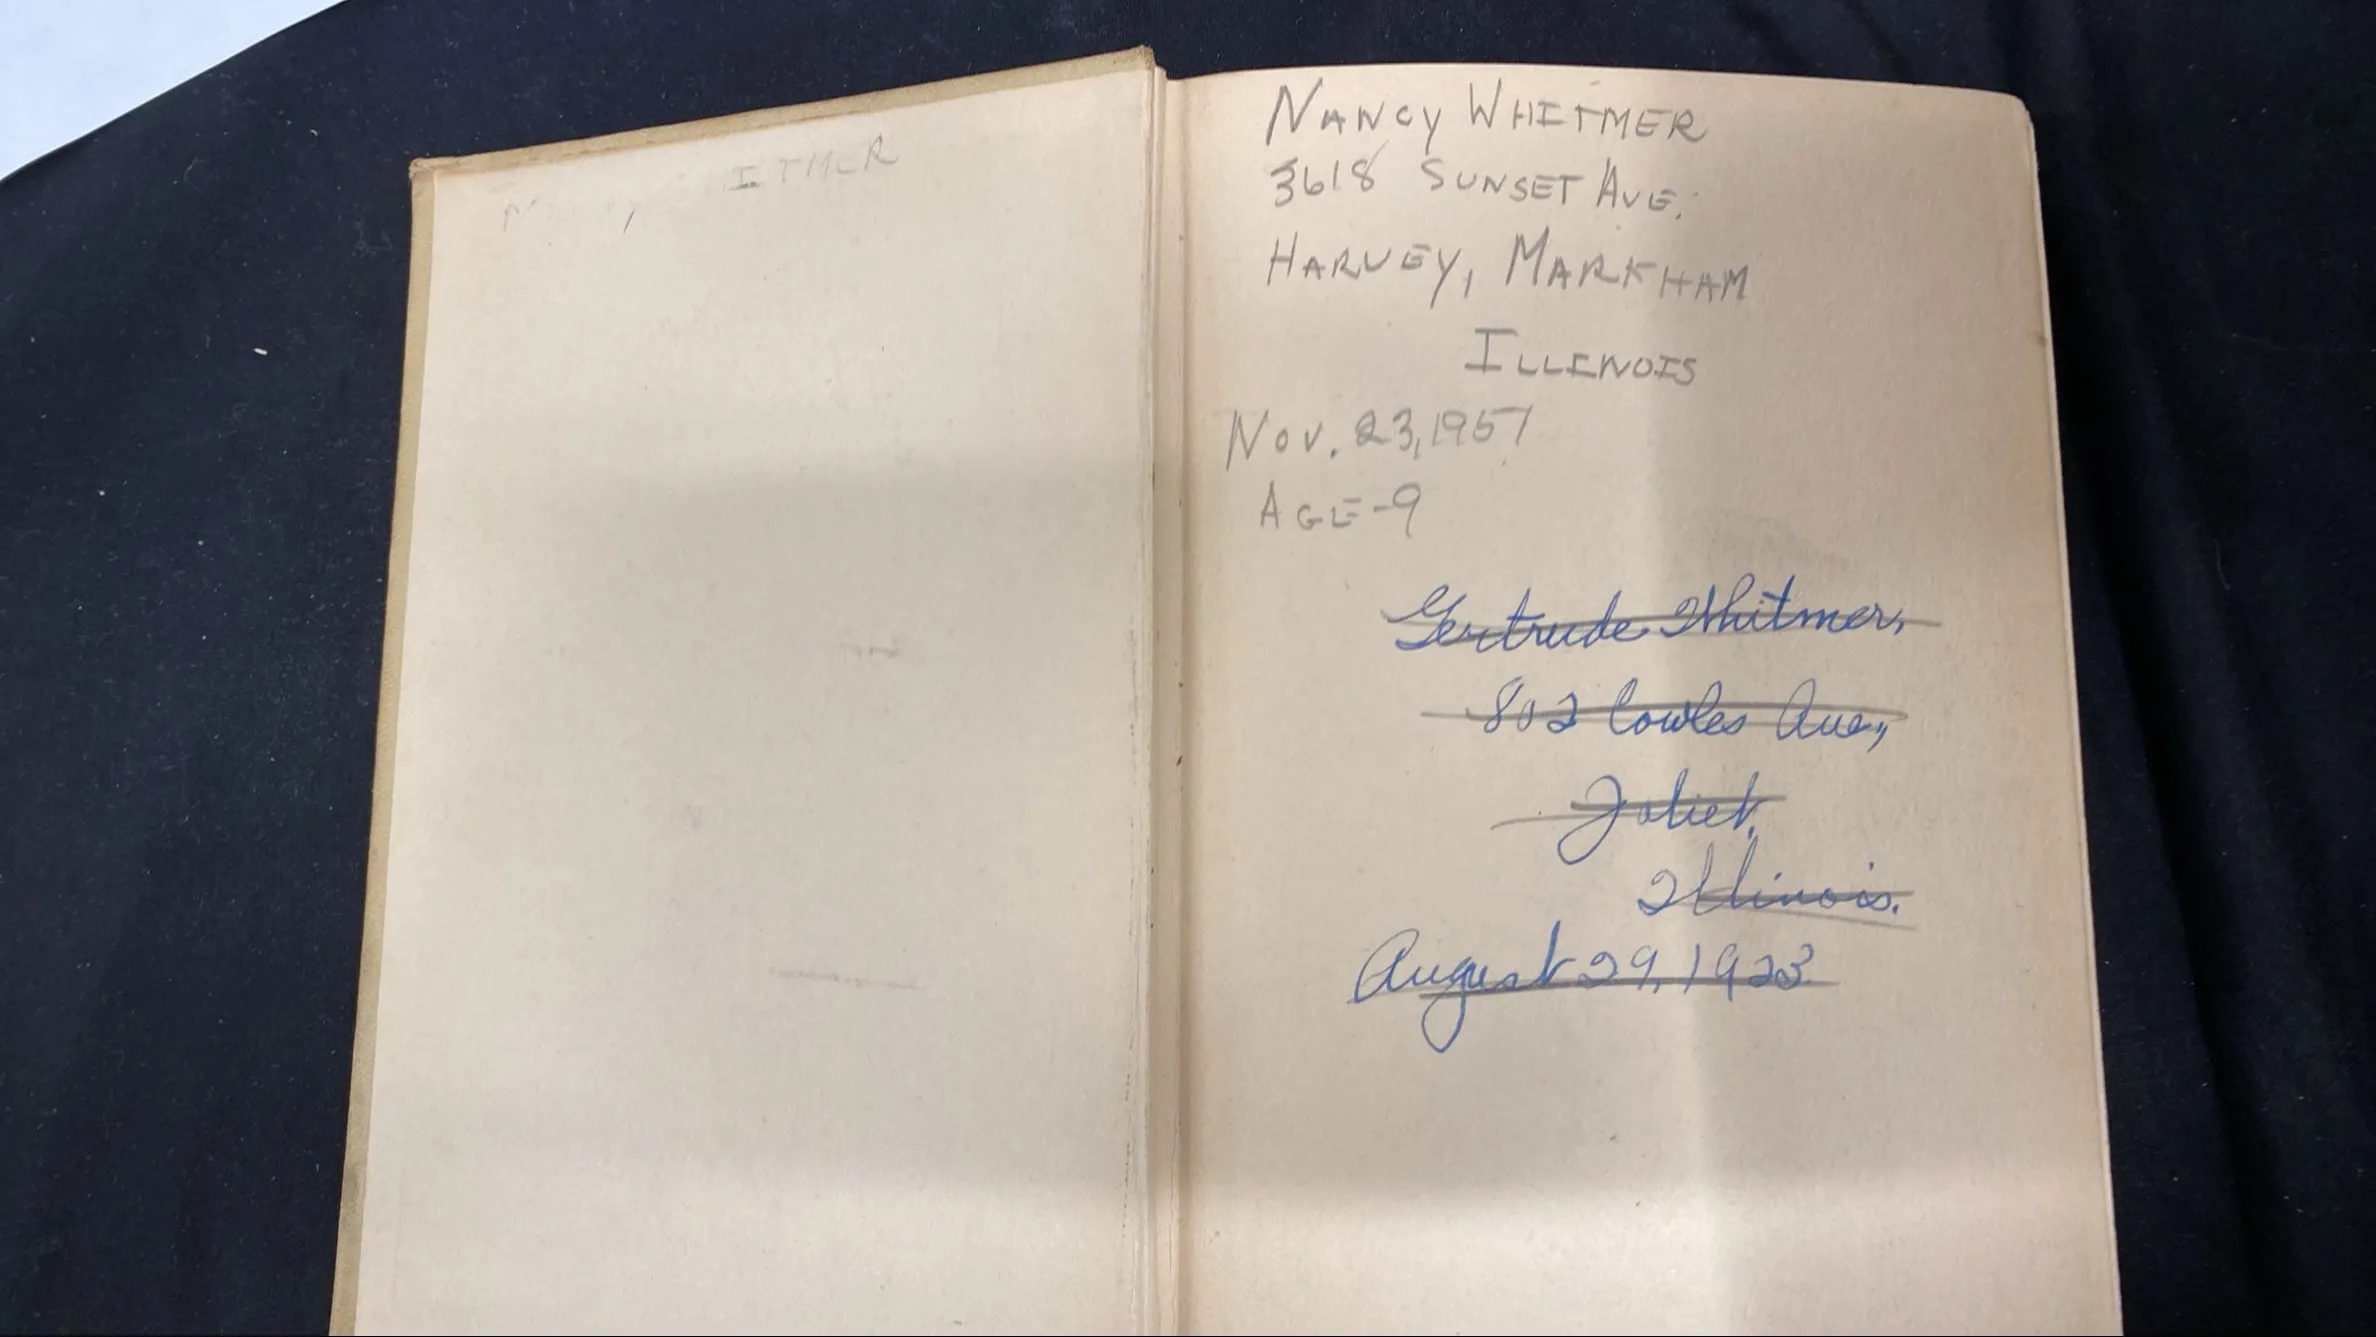 ITMER
NANCY WHITMER
3618 SUNSET AVE.
HARVEY, MARKHAM
ILLINOIS
Nov. 23, 1957
AGE-9
Gertrude Whitmer,
802 Cowles Ave.,
Joliet,
Illinois.
August 29, 1923